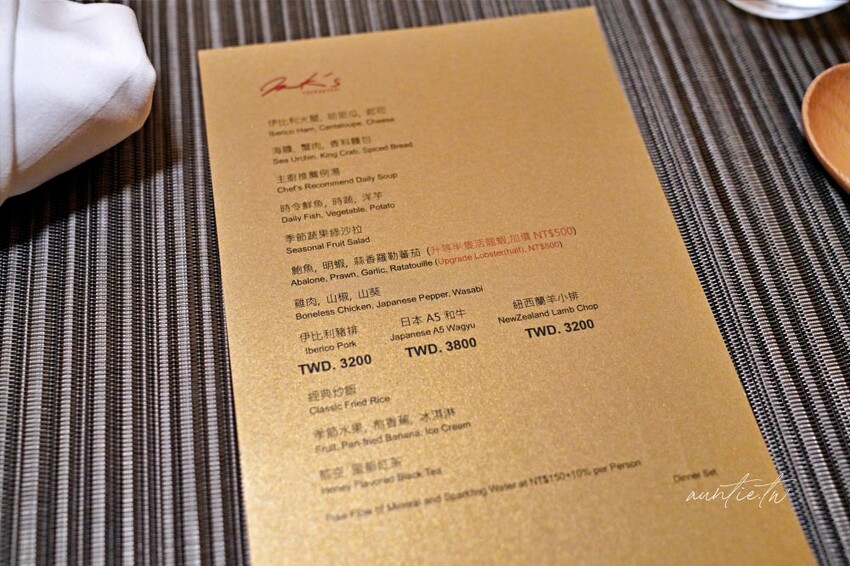 Jack's
伊比利火腿, 哈密瓜, 起司
Iberico Ham, Cantaloupe, Cheese
海膽, 蟹肉, 香料麵包
Sea Urchin, King Crab, Spiced Bread
主廚推薦例湯
Chef's Recommend Daily Soup
時令鮮魚, 時蔬, 洋芋
Daily Fish, Vegetable, Potato
季節蔬果綠沙拉
Seasonal Fruit Salad
鮑魚, 明蝦, 蒜香羅勒蕃茄 (升等半隻活龍蝦,加價 NT$500)
Abalone, Prawn, Garlic, Ratatouille (Upgrade Lobster(half), NT$500)
雞肉, 山椒, 山葵
Boneless Chicken, Japanese Pepper, Wasabi
伊比利豬排 日本 A5 和牛 紐西蘭羊小排
Iberico Pork Japanese A5 Wagyu NewZealand Lamb Chop
TWD. 3200 TWD. 3800 TWD. 3200
經典炒飯
Classic Fried Rice
季節水果, 煎香蕉, 冰淇淋
Fruit, Pan-fried Banana, Ice Cream
蜜蜂紅茶
Honey Flavored Black Tea
Free Flow of Mineral and Sparkling Water at NT$150+10% per Person
Dinner Set
auntie.tw